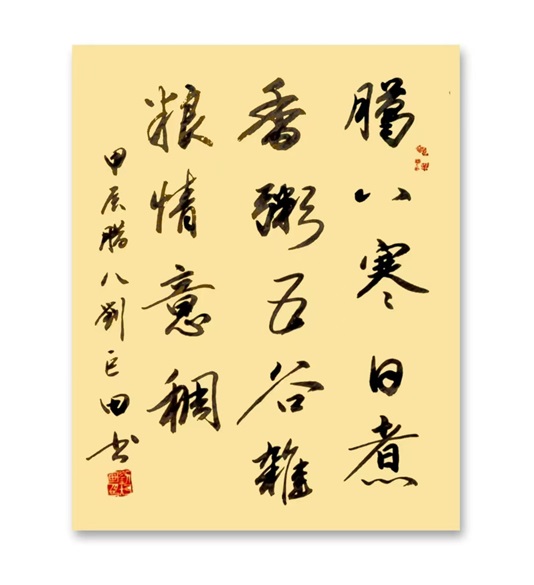 腊八寒日煮
香粥五谷杂
粮情意稠
甲辰腊八刘巨田书